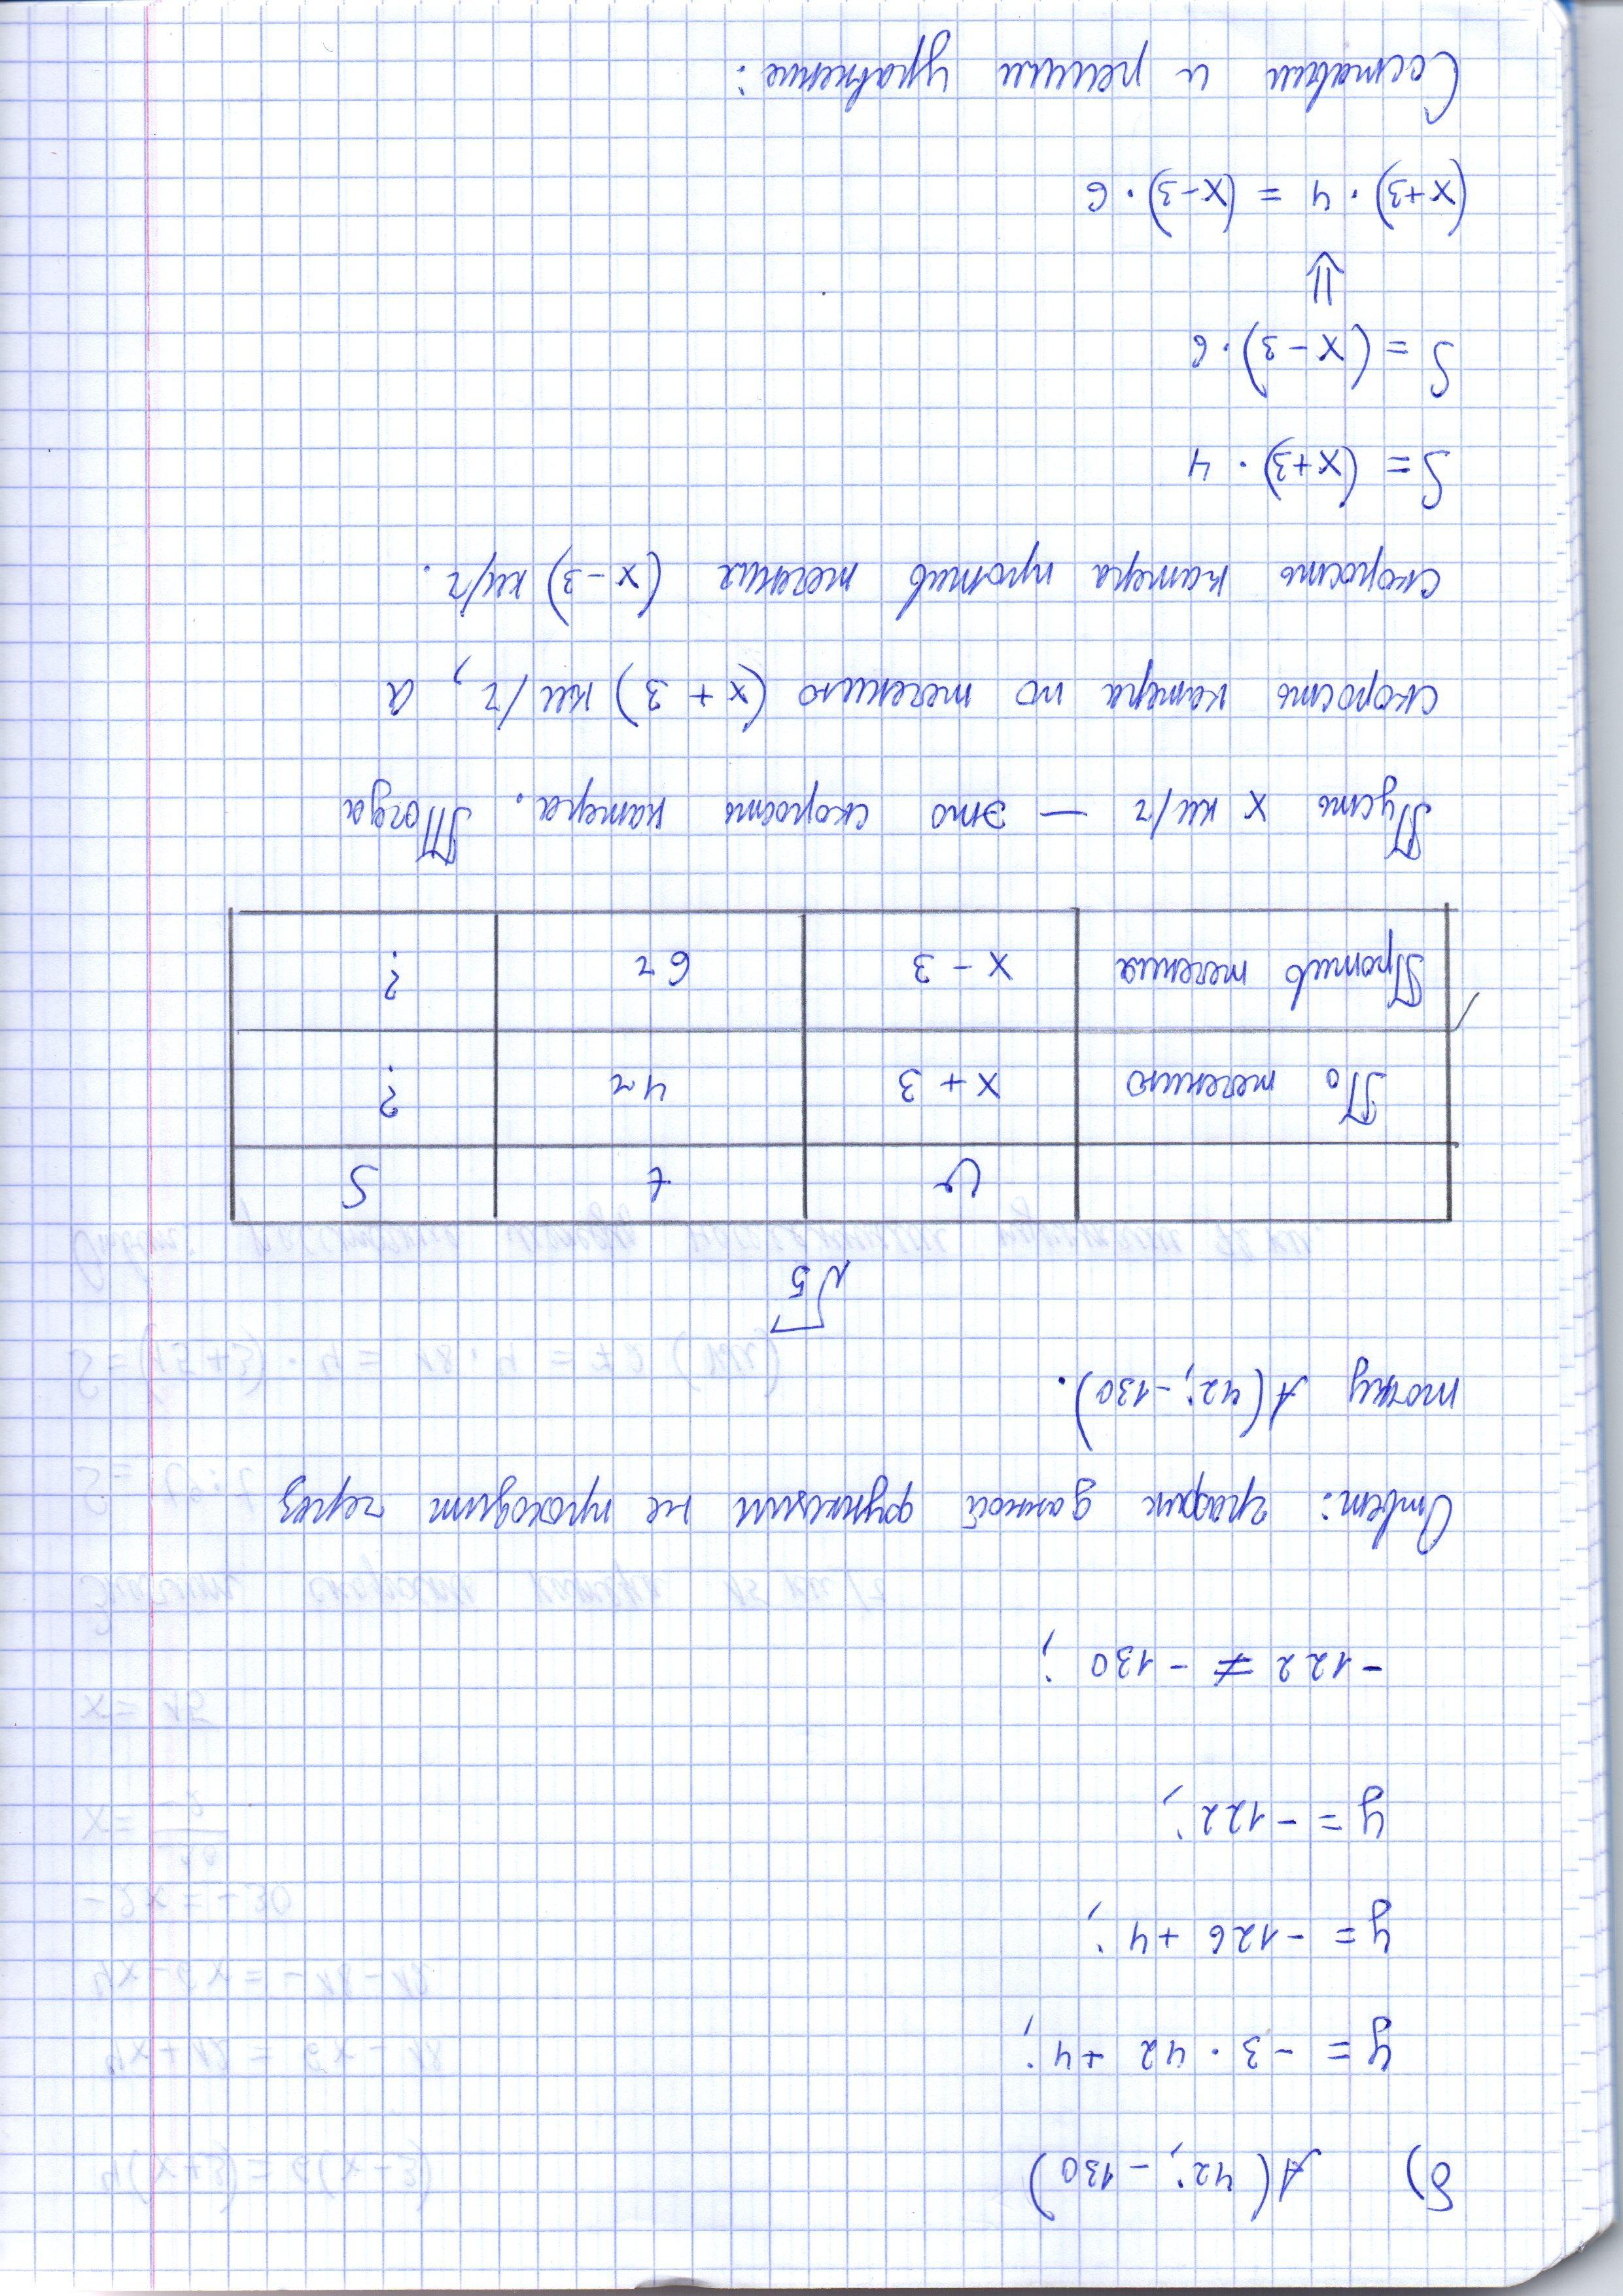 б) A(42; -130)
y = -3 · 42 + 4;
y = -126 + 4;
y = -122;
-122 ≠ -130;
Ответ: график данной функции не проходит через
точку A(42; -130).
√5
v t S
По течению x + 3 4ч ?
Против течения x - 3 6ч ?
Пусть x км/ч — это скорость катера. Тогда
скорость катера по течению (x + 3) км/ч, а
скорость катера против течения (x-3) км/ч.
S = (x+3) · 4
S = (x-3) · 6
⇓
(x+3) · 4 = (x-3) · 6
Составим и решим уравнение: